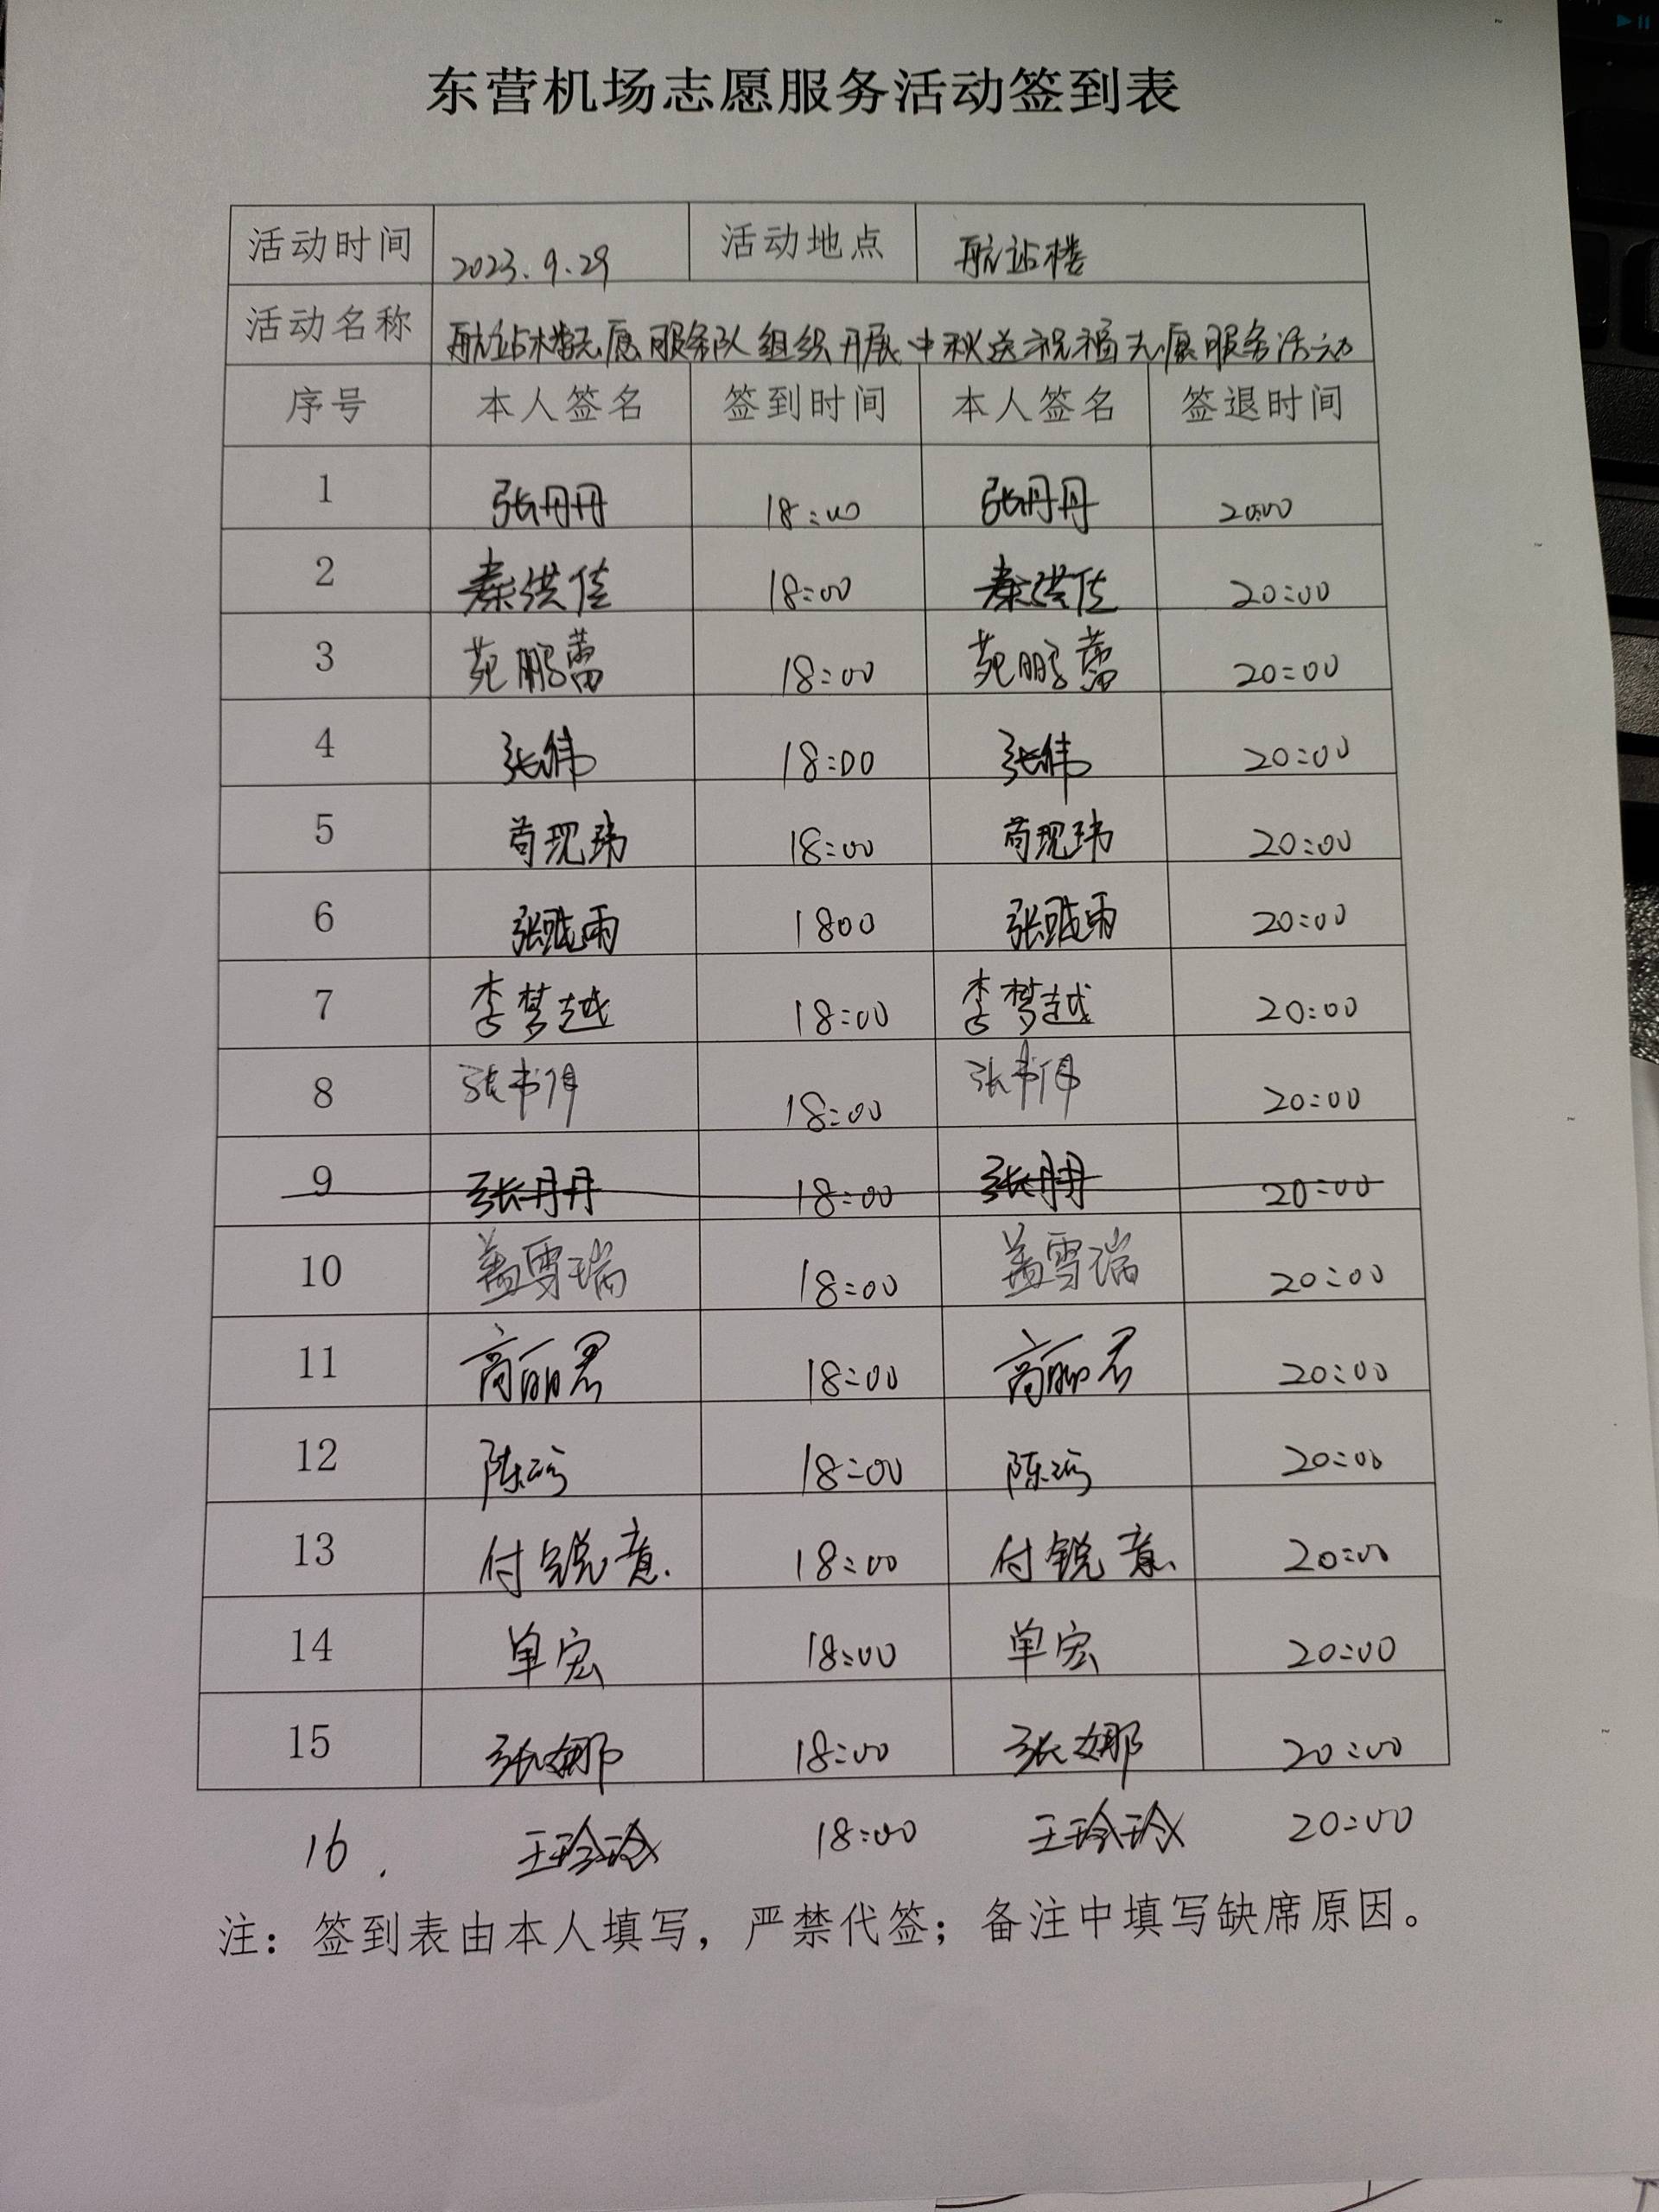 东营机场志愿服务活动签到表
活动时间 2023.9.29 活动地点 航站楼
活动名称 航站楼志愿服务队组织开展中秋送祝福志愿服务活动
序号 本人签名 签到时间 本人签名 签退时间
1 张丹丹 18:00 张丹丹 20:00
2 秦洪佳 18:00 秦洪佳 20:00
3 苑鹏蕾 18:00 苑鹏蕾 20:00
4 张伟 18:00 张伟 20:00
5 苟现玮 18:00 苟现玮 20:00
6 张 雨 1800 张 雨 20:00
7 李梦越 18:00 李梦越 20:00
8 张书 18:00 张书 20:00
9 张丹丹 18:00 张丹丹 20:00
10 盖雪瑞 18:00 盖雪瑞 20:00
11 高丽君 18:00 高丽君 20:00
12 陈 18:00 陈 20:00
13 付锐意. 18:00 付锐意. 20:00
14 单宏 18:00 单宏 20:00
15 张娜 18:00 张娜 20:00
16. 王玲玲 18:00 王玲玲 20:00
注：签到表由本人填写，严禁代签；备注中填写缺席原因。